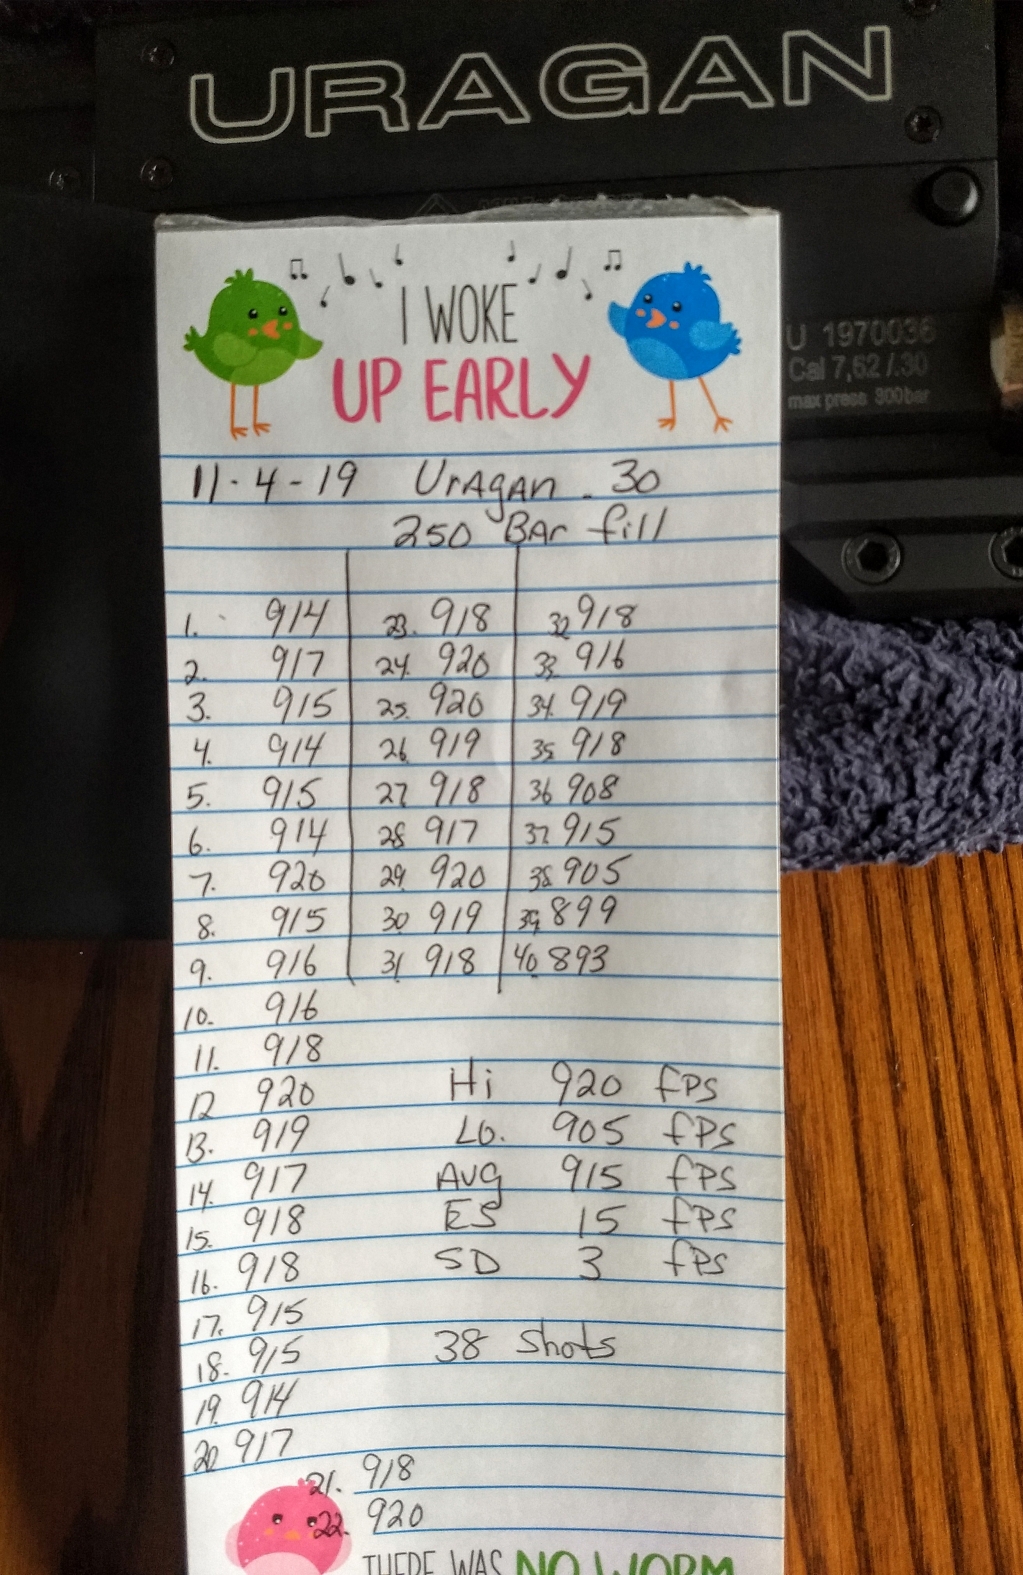 URAGAN
U 1970036
Cal 7,62 /.30
max press 300bar
I WOKE
UP EARLY
11-4-19 Uragan .30
250 BAr fill
1. 914
2. 917
3. 915
4. 914
5. 915
6. 914
7. 920
8. 915
9. 916
10. 916
11. 918
12 920
13. 919
14. 917
15. 918
16. 918
17. 915
18. 915
19. 914
20. 917
21. 918
22. 920
23. 918
24. 920
25. 920
26. 919
27. 918
28 917
29. 920
30 919
31 918
32 918
33. 916
34. 919
35 918
36 908
37. 915
38 905
39. 899
40. 893
Hi 920 fps
Lo. 905 fps
Avg 915 fps
ES 15 fps
SD 3 fps
38 Shots
THERE WAS NO WORM